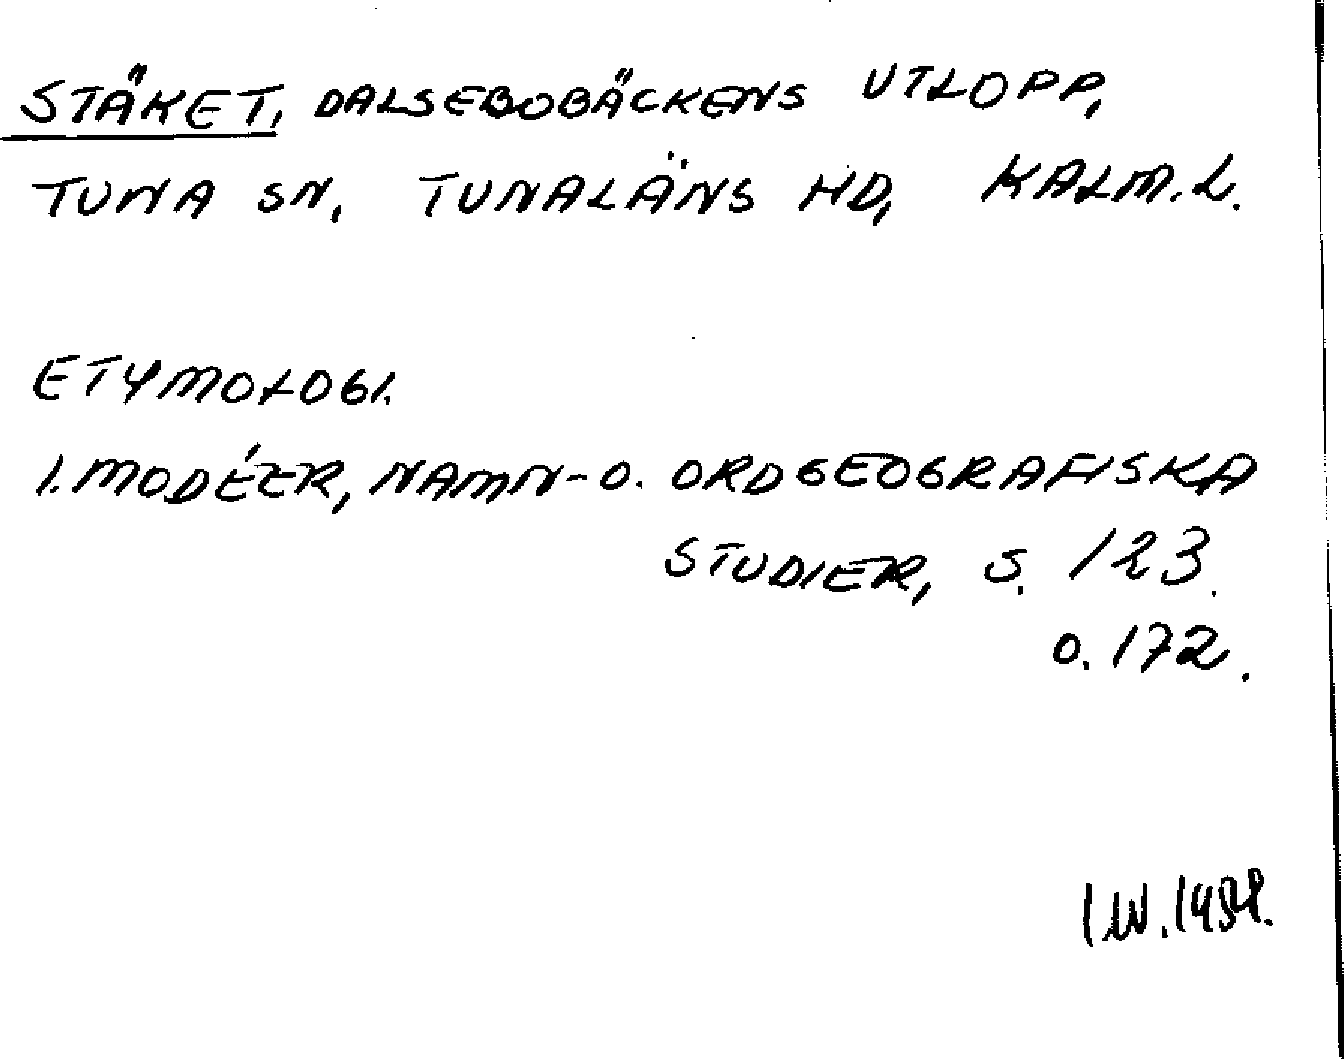 STÄKET, DALSEBOBÄCKENS UTLOPP,
TUNA SN, TUNALÄNS HD, KALM. L.
ETYMOLOGI.
I. MODÉER, NAMN- O. ORDGEOGRAFISKA
STUDIER, S. 123.
O. 172.